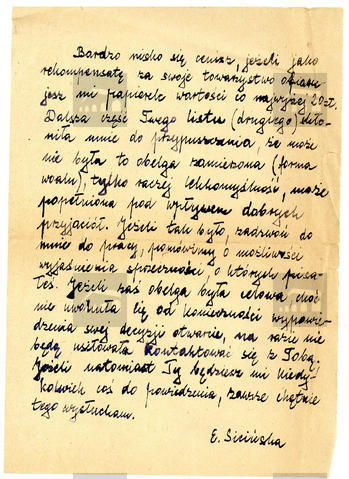 Bardzo nisko się cenisz, jeżeli jako
rekompensatę za swoje towarzystwo ofiaru
jesz mi papierek wartości co najwyżej 20 zł.
Dalsza część Twego listu (drugiego) skło-
niła mnie do przypuszczenia, że może
nie była to obelga zamierzona (forma
woalu), tylko raczej lekkomyślność, może
popełniona pod wpływem dobrych
przyjaciół. Jeżeli tak było, zadzwoń do
mnie do pracy, pomówimy o możliwości
wyjaśnienia sprzeczności, o których pisa-
łeś. Jeżeli zaś obelga była celowa choć
nie uwolniła Cię od konieczności wypowie-
dzenia swej decyzji otwarcie, na razie nie
będę usiłowała kontaktować się z Tobą.
Jeżeli natomiast Ty będziesz mi kiedy-
kolwiek coś do powiedzenia, zawsze chętnie
tego wysłucham.
E. Sicińska